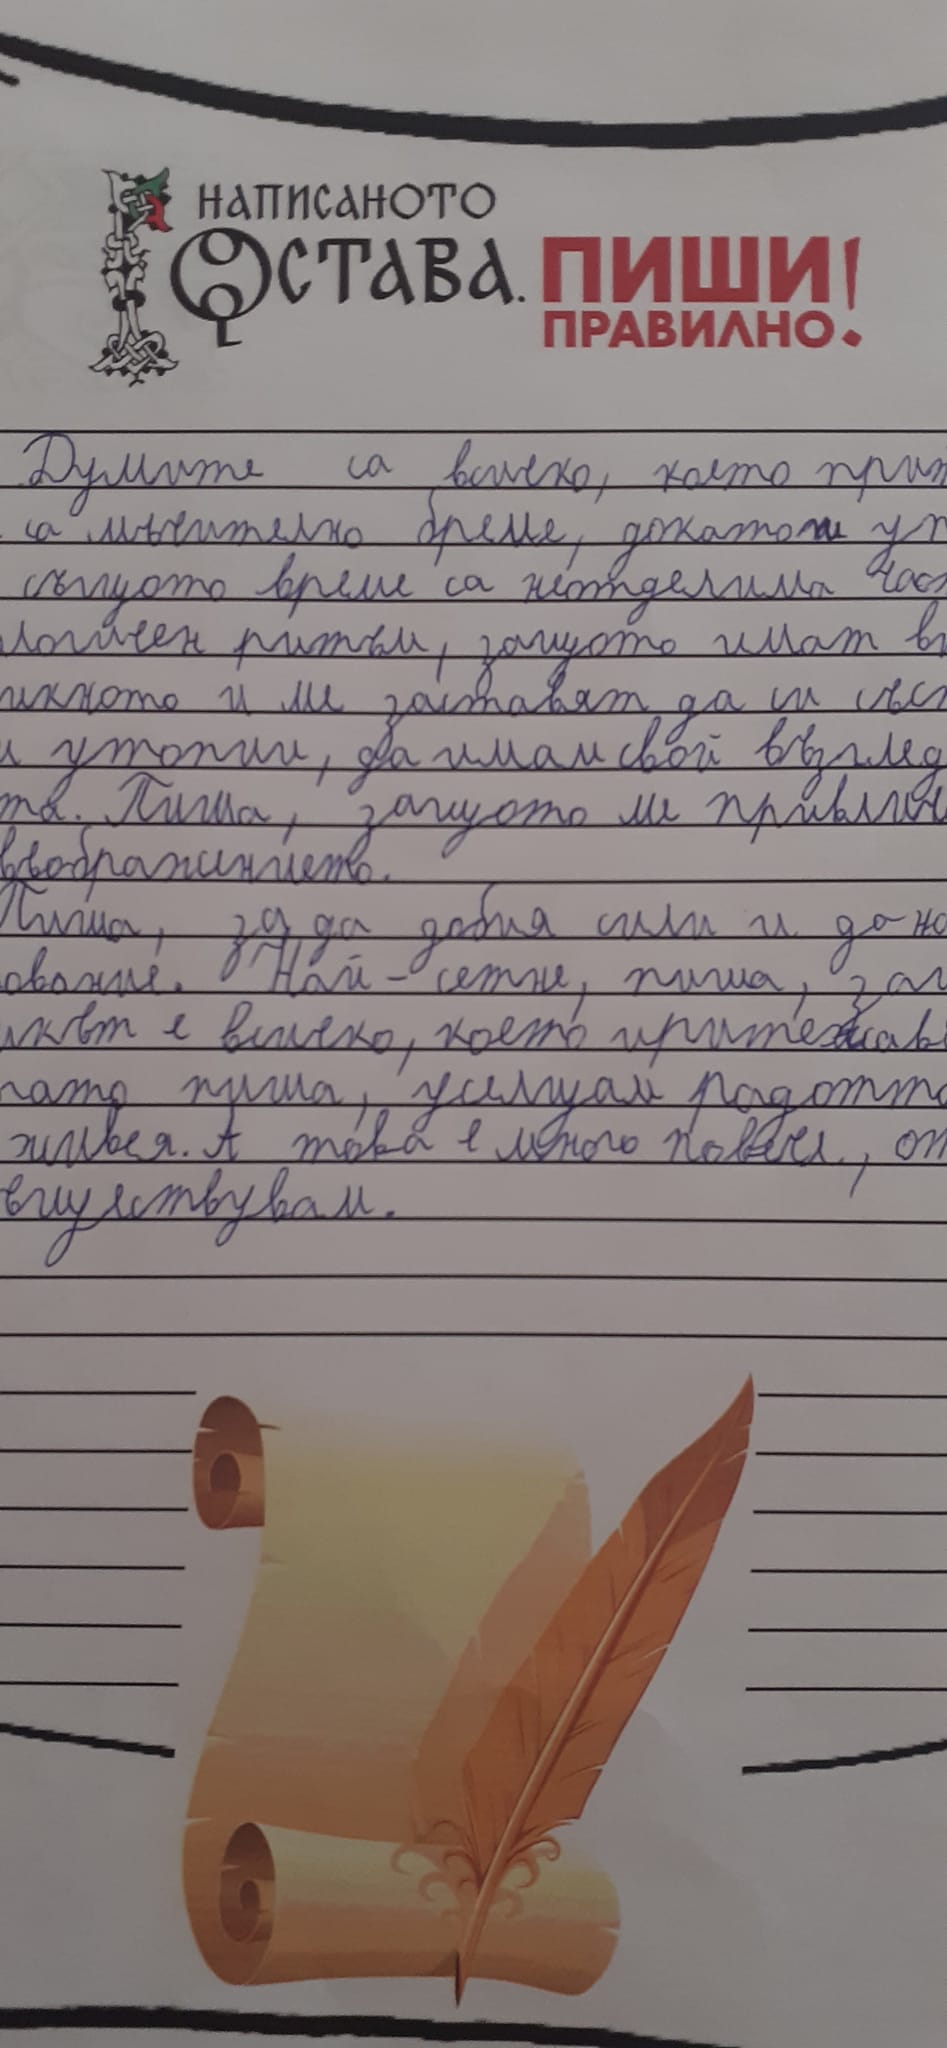 НАПИСАНОТО
ОСТАВА. ПИШИ
ПРАВИЛНО!
Думите са всичко, което при
са мъчително бреме, докато
същото време са неотделима час
логичен ритъм, защото имат в
икното и ме заставят да си със
и утопии, да имам свой възглед
та. Пиша, защото ме привлич
въображението.
Пиша, за да добия сили и да на
ование. Най-сетне, пиша, за
икът е всичко, което притежав
гато пиша, усещам радостта
живея. А това е много повече, от
съществувам.